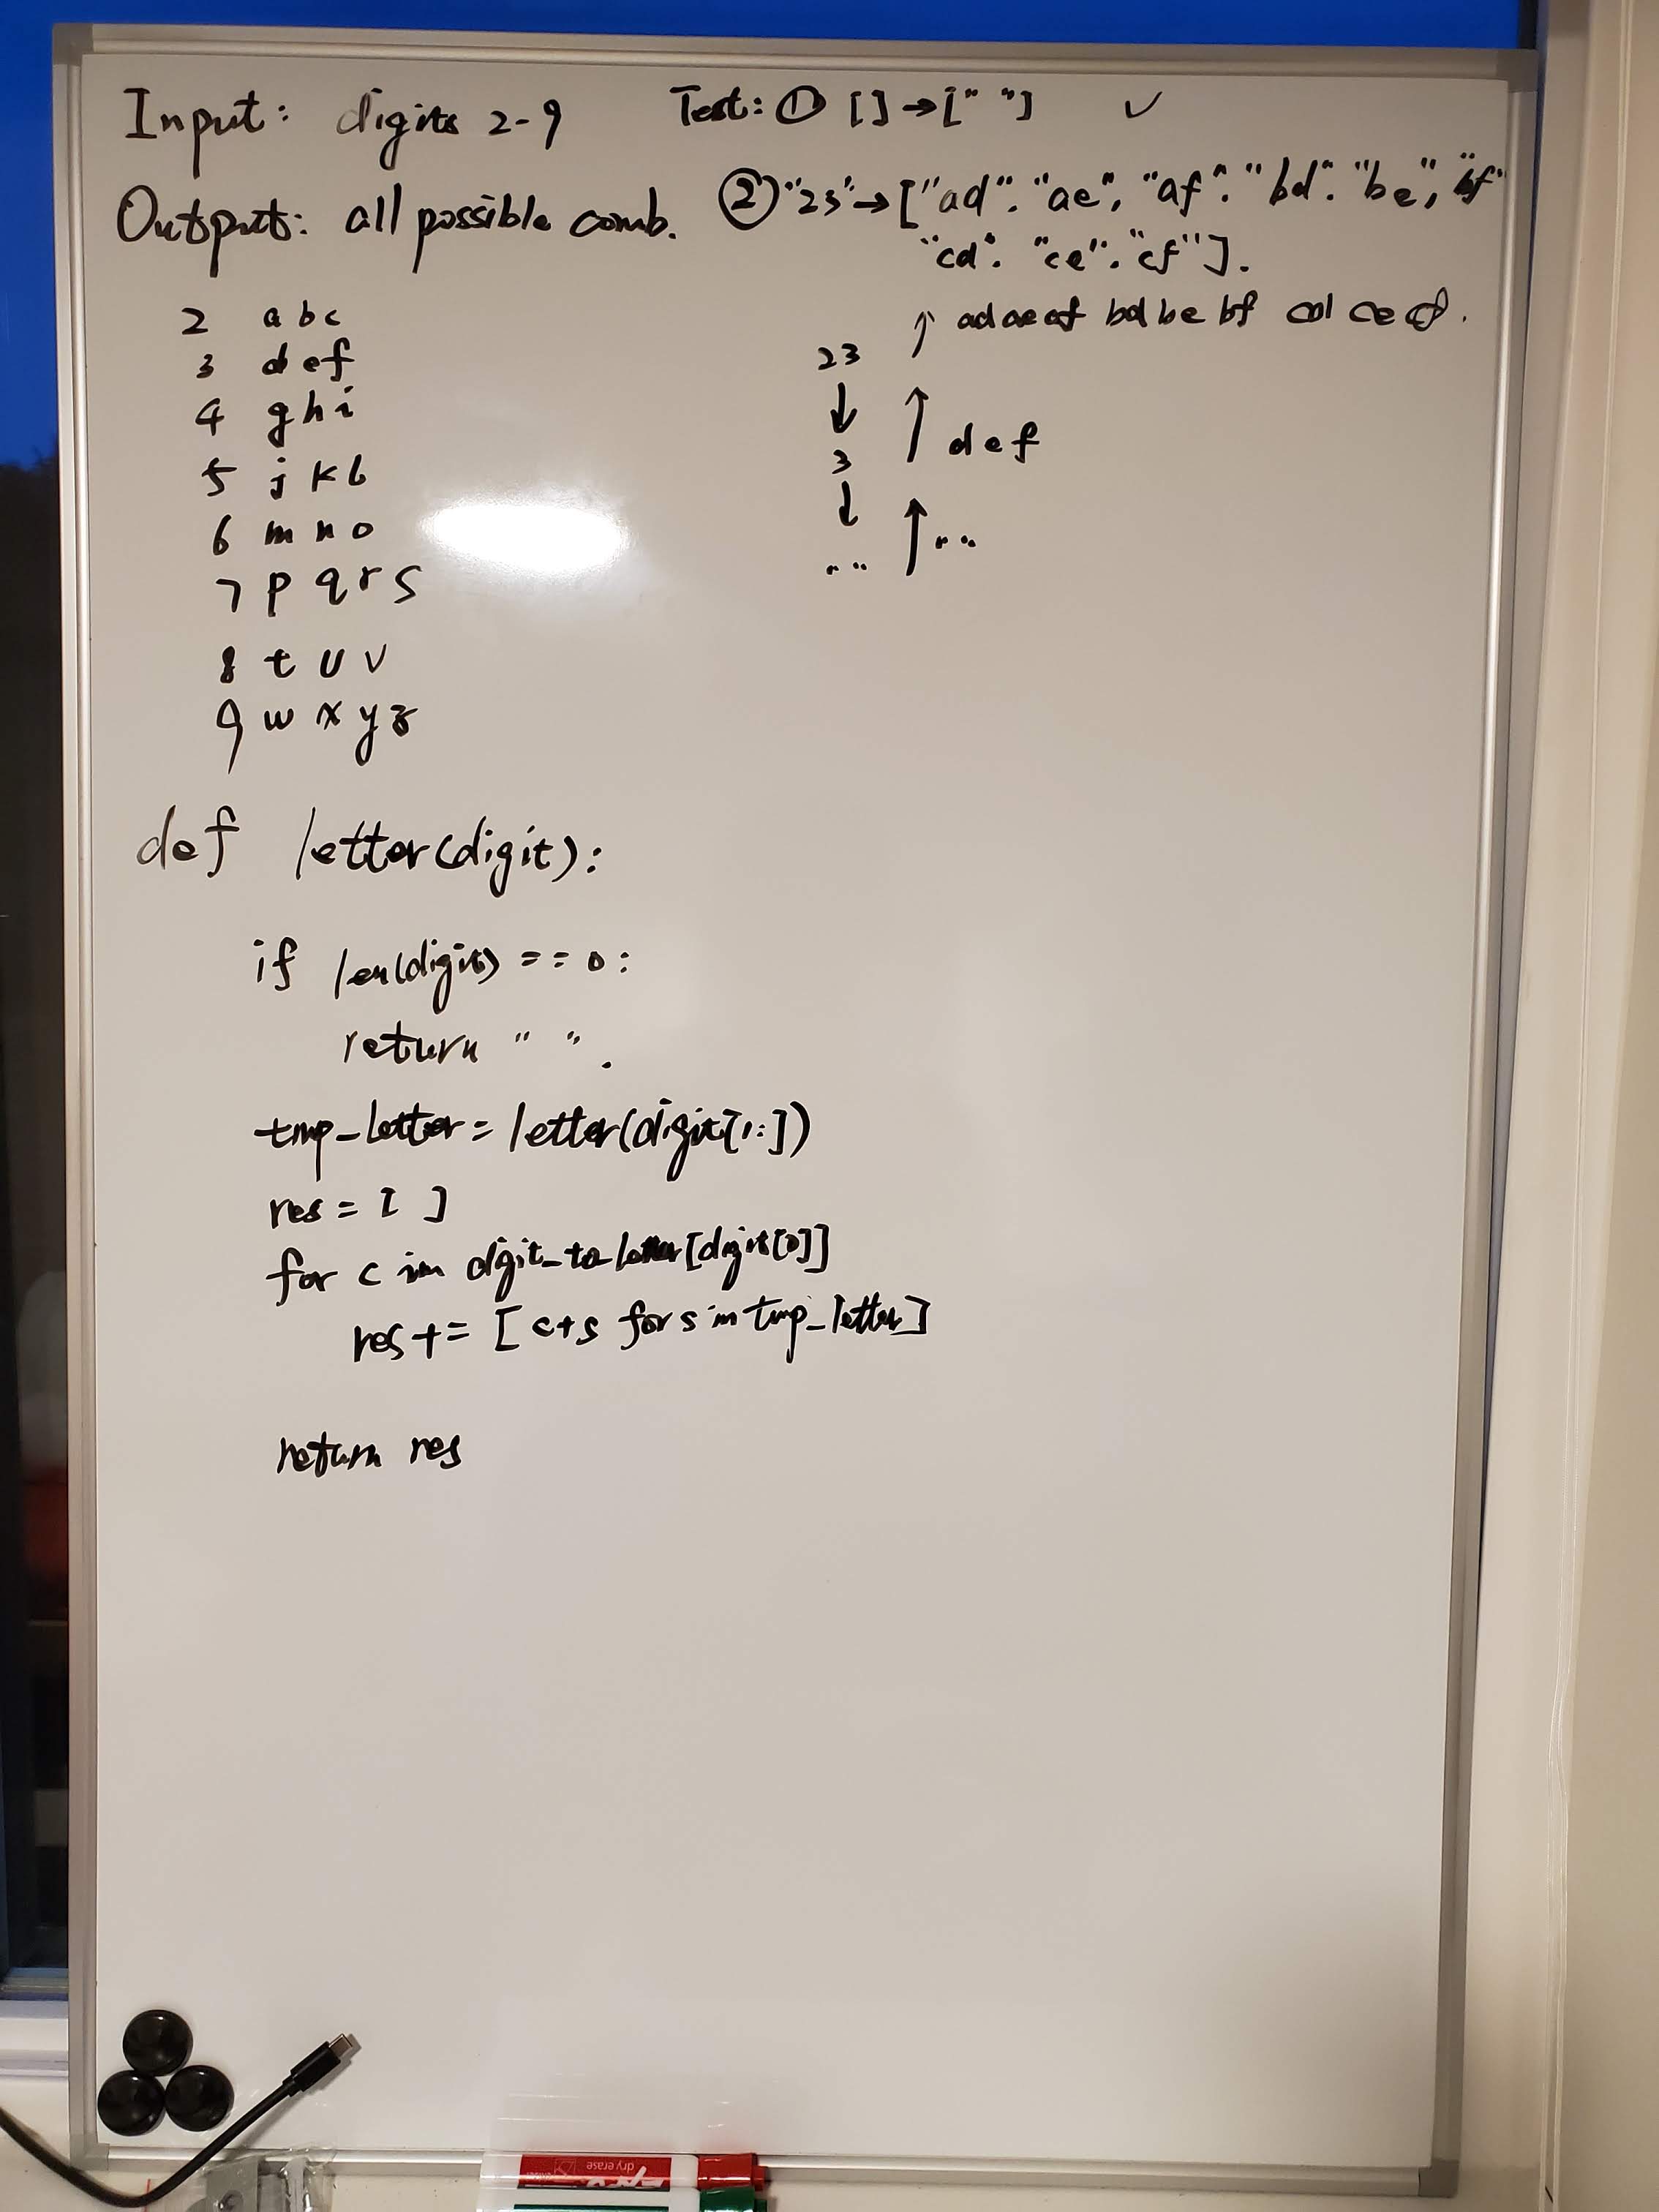 Input: digits 2-9
Output: all possible comb.
Test: ① [] → [" "] ✓
② "23" → ["ad". "ae", "af". "bd". "be", "bf"
"cd". "ce". "cf"].
2 abc
3 def
4 ghi
5 jkl
6 mno
7 pqrs
8 tuv
9 wxyz
↑ ad ae af bd be bf cd ce cf.
23
↓ ↑ def
3
↓ ↑ ...
...
def letter(digit):
if len(digits) == 0:
return " ".
tmp_letter = letter(digit[1:])
res = [ ]
for c in digit_to_letter[digit[0]]
res += [c+s for s in tmp_letter]
return res
dry erase